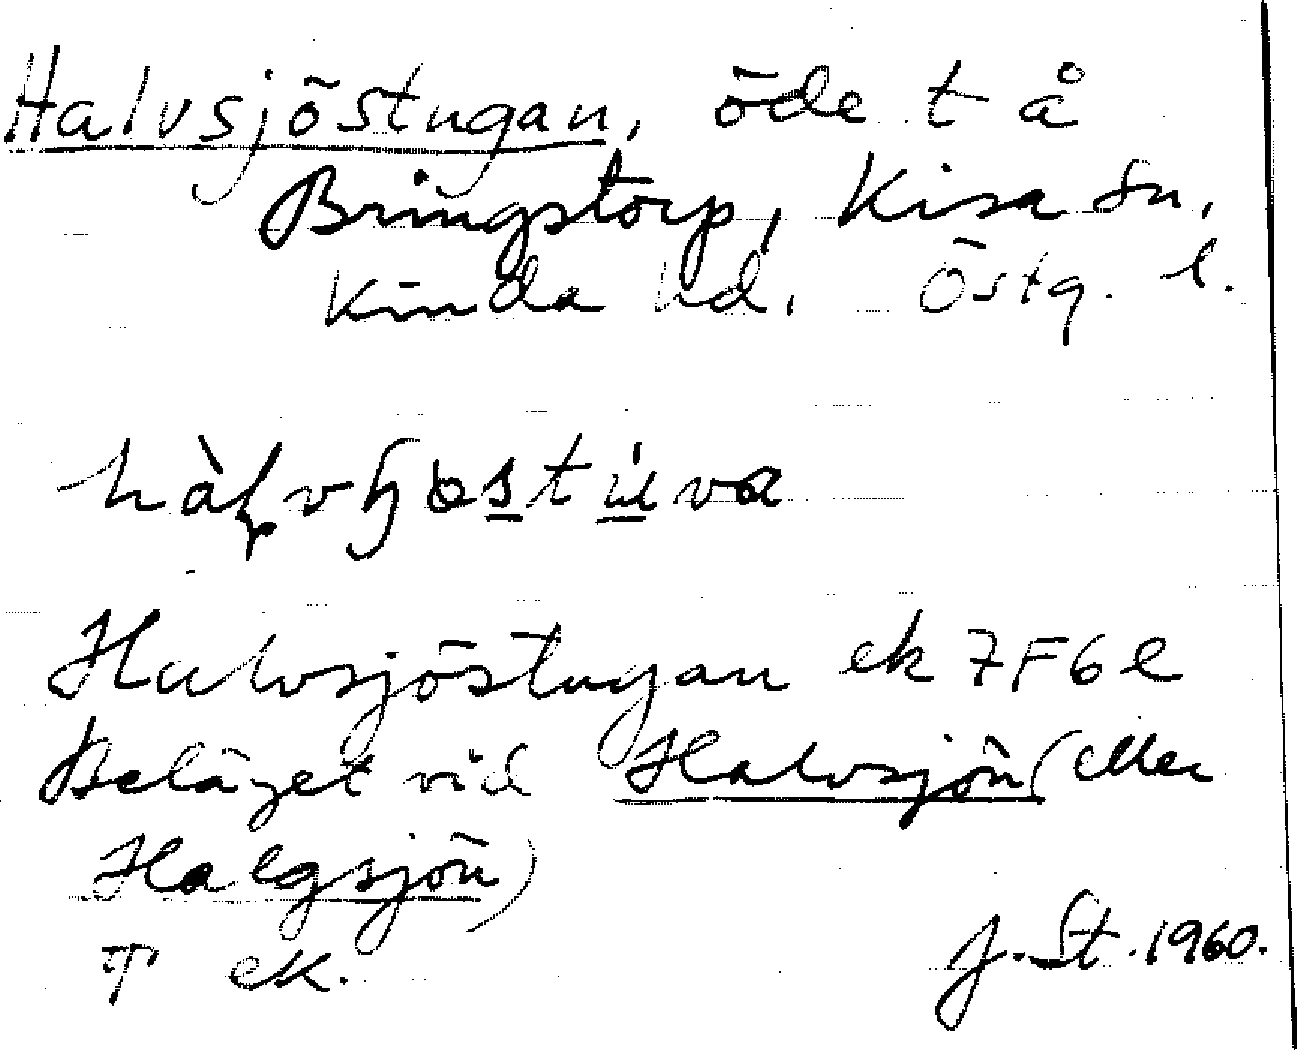 Halvsjöstugan, öde t å
Bringstorp, Kisa sn,
Kinda hd. Östg. l.
Halvsjöstugan ek 7F6e
Beläget vid Halvsjön (eller
Halgsjön)
T ek. J. St. 1960.